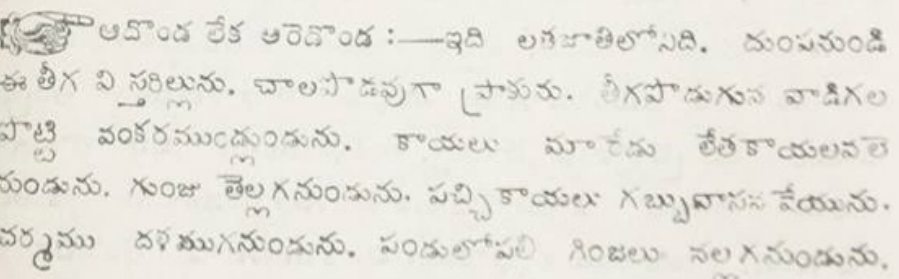 ఆదొండ లేక ఆరెదొండ :—ఇది లతజాతిలోనిది. దుంపనుండి
ఈ తీగ వి స్తరిల్లును. చాలపొడవుగా ప్రాకును. తీగపొడుగున వాడిగల
పొట్టి వంకరముండ్లుండును. కాయలు మారేడు లేతకాయలవలె
నుండును. గుంజు తెల్లగనుండును. పచ్చికాయలు గబ్బువాసన వేయును.
చర్మము దళముగనుండును. పండులోపలి గింజలు నల్లగనుండును.